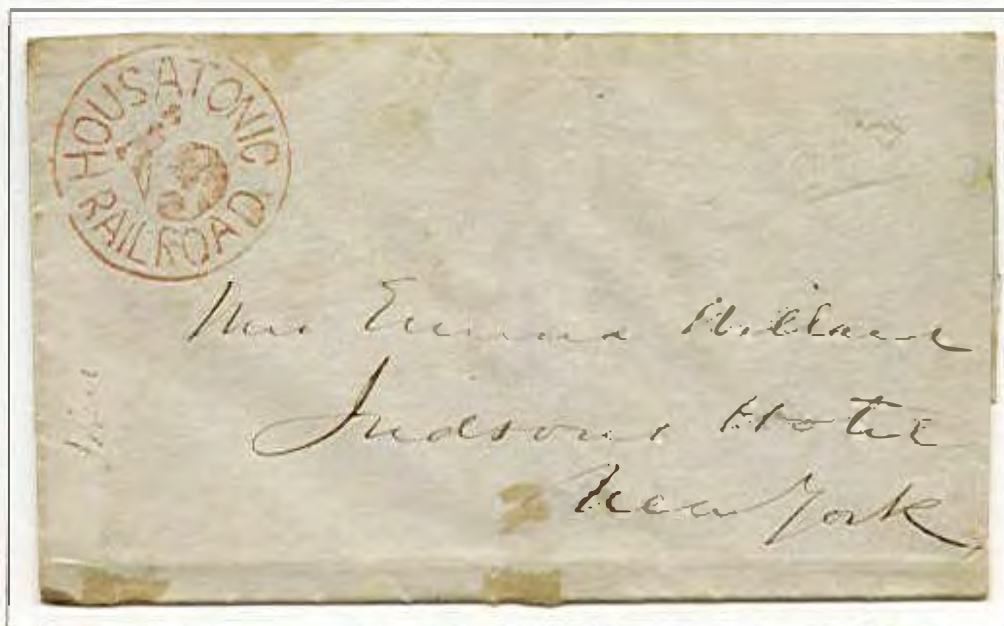 HOUSATONIC
RAILROAD
Mrs Emma Willard
Judsons Hotel
New York